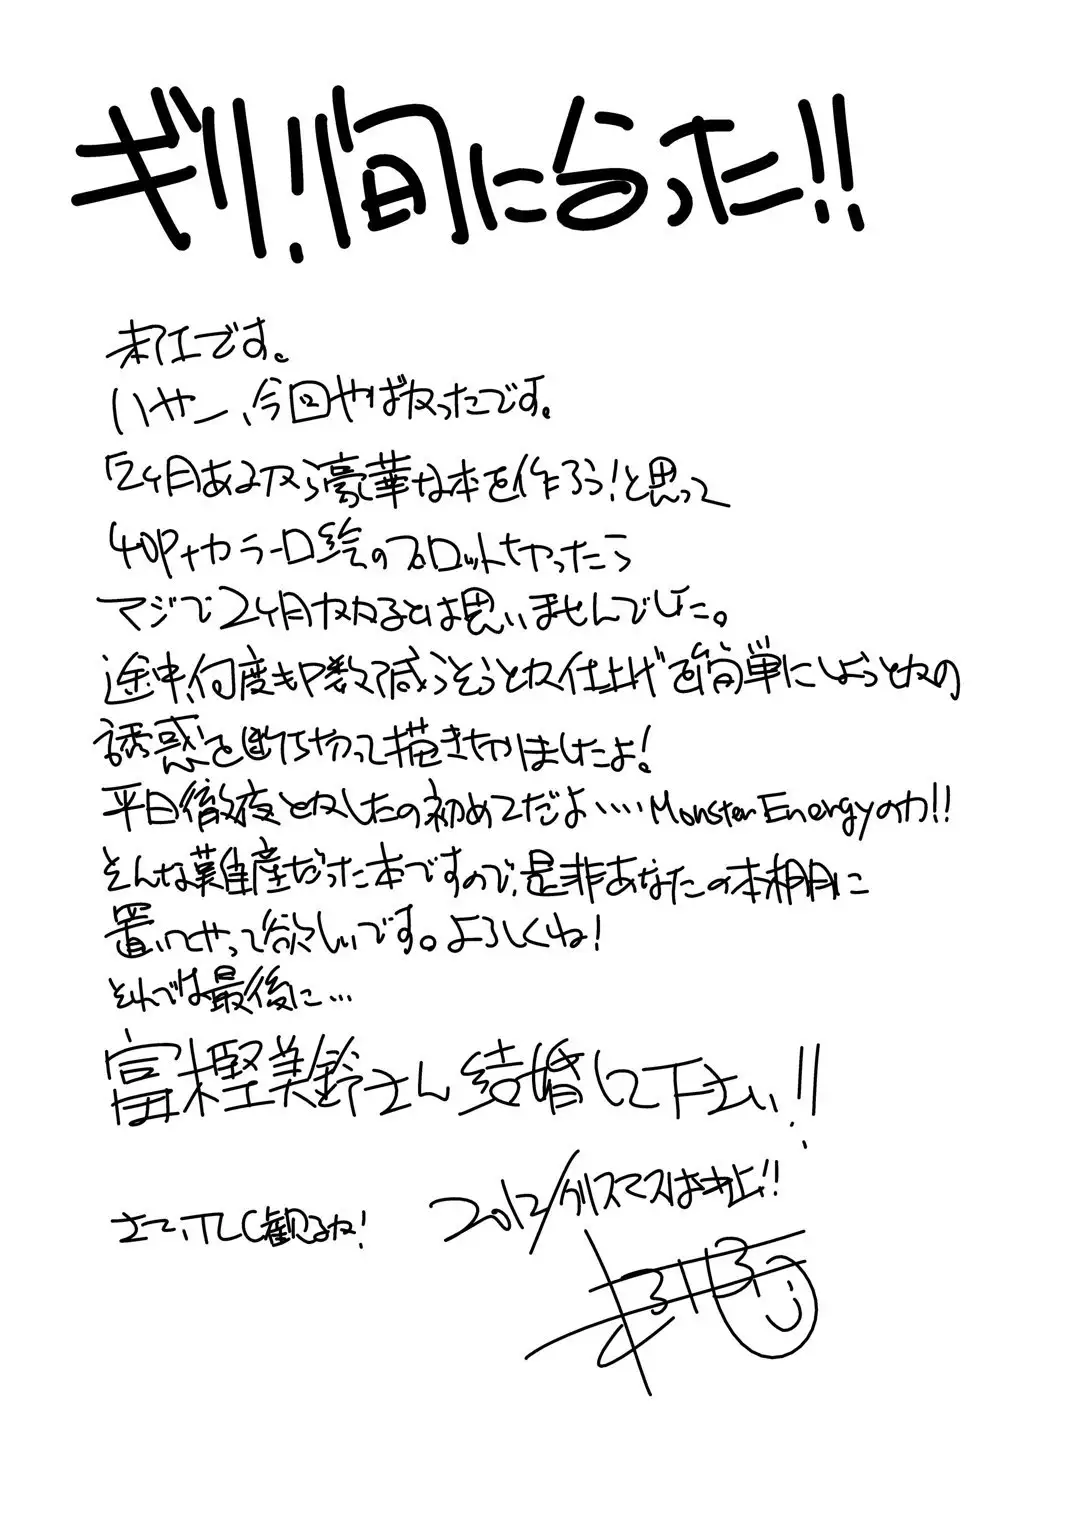 ギリ!間にあった!!
未江です。
いやー、今回やばかったです。
「2ヶ月あるから豪華な本を作ろう!と思って
40P+カラー口絵のプロットをやったら
マジで2ヶ月かかるとは思いませんでした。
途中、何度もP数減らそうとか仕上げを簡単にしようとかの
誘惑を断ち切って描ききりましたよ!
平日徹夜とかしたの初めてだよ……Monster Energyの力!!
そんな難産だった本ですので、是非あなたの本棚に
置いてやって欲しいです。よろしくね!
それでは最後に…
富樫美鈴さん結婚して下さい!!
さて、TLC観るか!
2012/クリスマスは中止!!